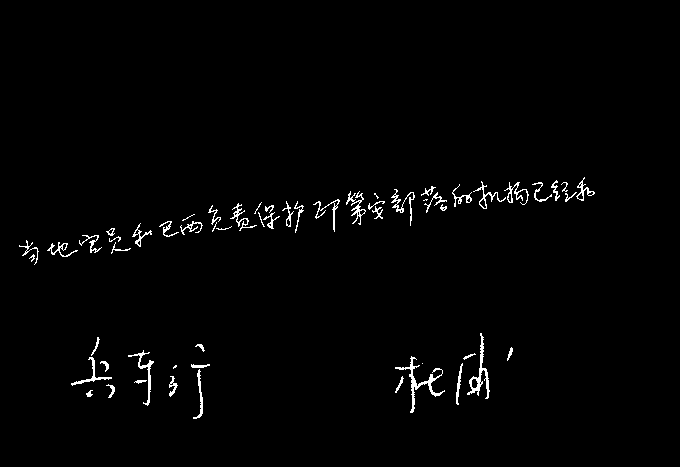 当地官员和巴西负责保护印第安部落的机构已经和
兵车行 杜甫